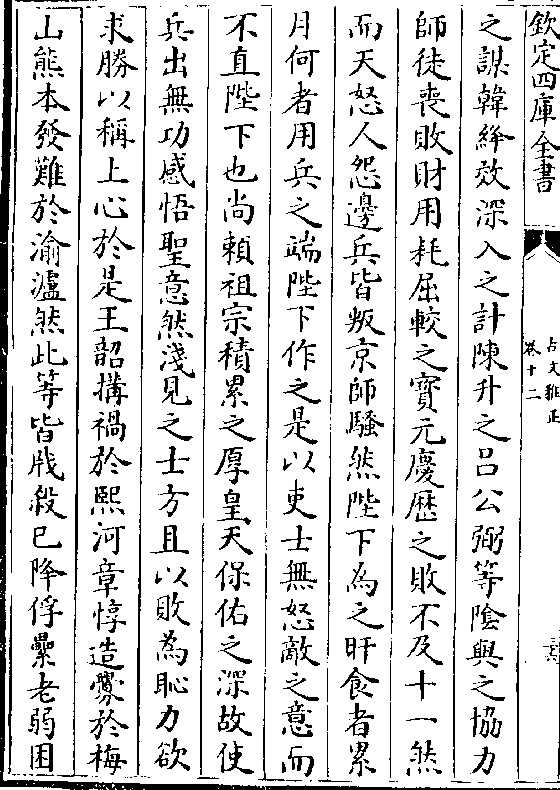 欽定四庫全書
古文雅正
卷十二
之謀韓絳效深入之計陳升之吕公弼等隂與之協力
師徒喪敗財用耗屈較之寳元慶歴之敗不及十一然
而天怒人怨邊兵皆叛京師騷然陛下為之旰食者累
月何者用兵之端陛下作之是以吏士無怒敵之意而
不直陛下也尚賴祖宗積累之厚皇天保佑之深故使
兵出無功感悟聖意然淺見之士方且以敗為恥力欲
求勝以稱上心於是王韶搆禍於熙河章惇造釁於梅
山熊本發難於渝瀘然此等皆戕殺已降俘纍老弱困